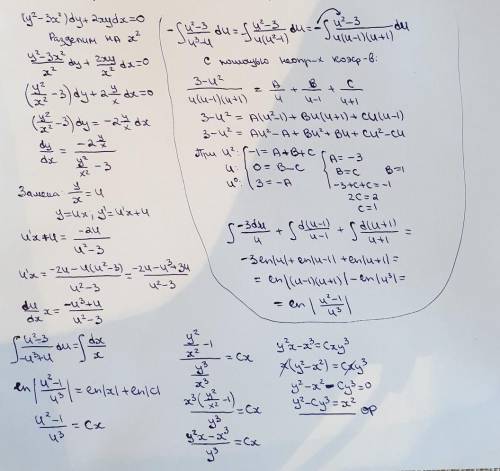 (y²-3x²)dy+2xydx=0
Разделим на x²
(y²-3x²)/x² dy + 2xy/x² dx=0
(y²/x² -3)dy+2 y/x dx=0
(y²/x² -3)dy=-2 y/x dx
dy/dx = (-2 y/x)/(y²/x² -3)
Замена: y/x=u
y=ux, y'=u'x+u
u'x+u = -2u/(u²-3)
u'x = (-2u-u(u²-3))/(u²-3) = (-2u-u³+3u)/(u²-3)
du/dx x = (-u³+u)/(u²-3)
∫ (u²-3)/(-u³+u) du = ∫ dx/x
ln|(u²-1)/u³| = ln|x|+ln|C|
(u²-1)/u³ = Cx
-∫ (u²-3)/(u³-u) du = -∫ (u²-3)/(u(u²-1)) du = -∫ (u²-3)/(u(u-1)(u+1)) du
С помощью неопр-х коэф-в:
(3-u²)/(u(u-1)(u+1)) = A/u + B/(u-1) + C/(u+1)
3-u² = A(u²-1)+Bu(u+1)+Cu(u-1)
3-u² = Au²-A+Bu²+Bu+Cu²-Cu
При u²: { -1=A+B+C { A=-3
u: 0=B-C B=C B=1
u⁰: 3=-A -3+C+C=-1
2C=2
C=1
∫ -3du/u + ∫ d(u-1)/(u-1) + ∫ d(u+1)/(u+1) =
-3ln|u|+ln|u-1|+ln|u+1|=
=ln|(u-1)(u+1)|-ln|u³|=
=ln|(u²-1)/u³|
(y²/x² -1)/(y³/x³) = Cx
x³(y²/x² -1)/y³ = Cx
(y²x-x³)/y³ = Cx
y²x-x³=Cxy³
x(y²-x²)=Cxy³
y²-x²-Cy³=0
y²-Cy³=x²
ор